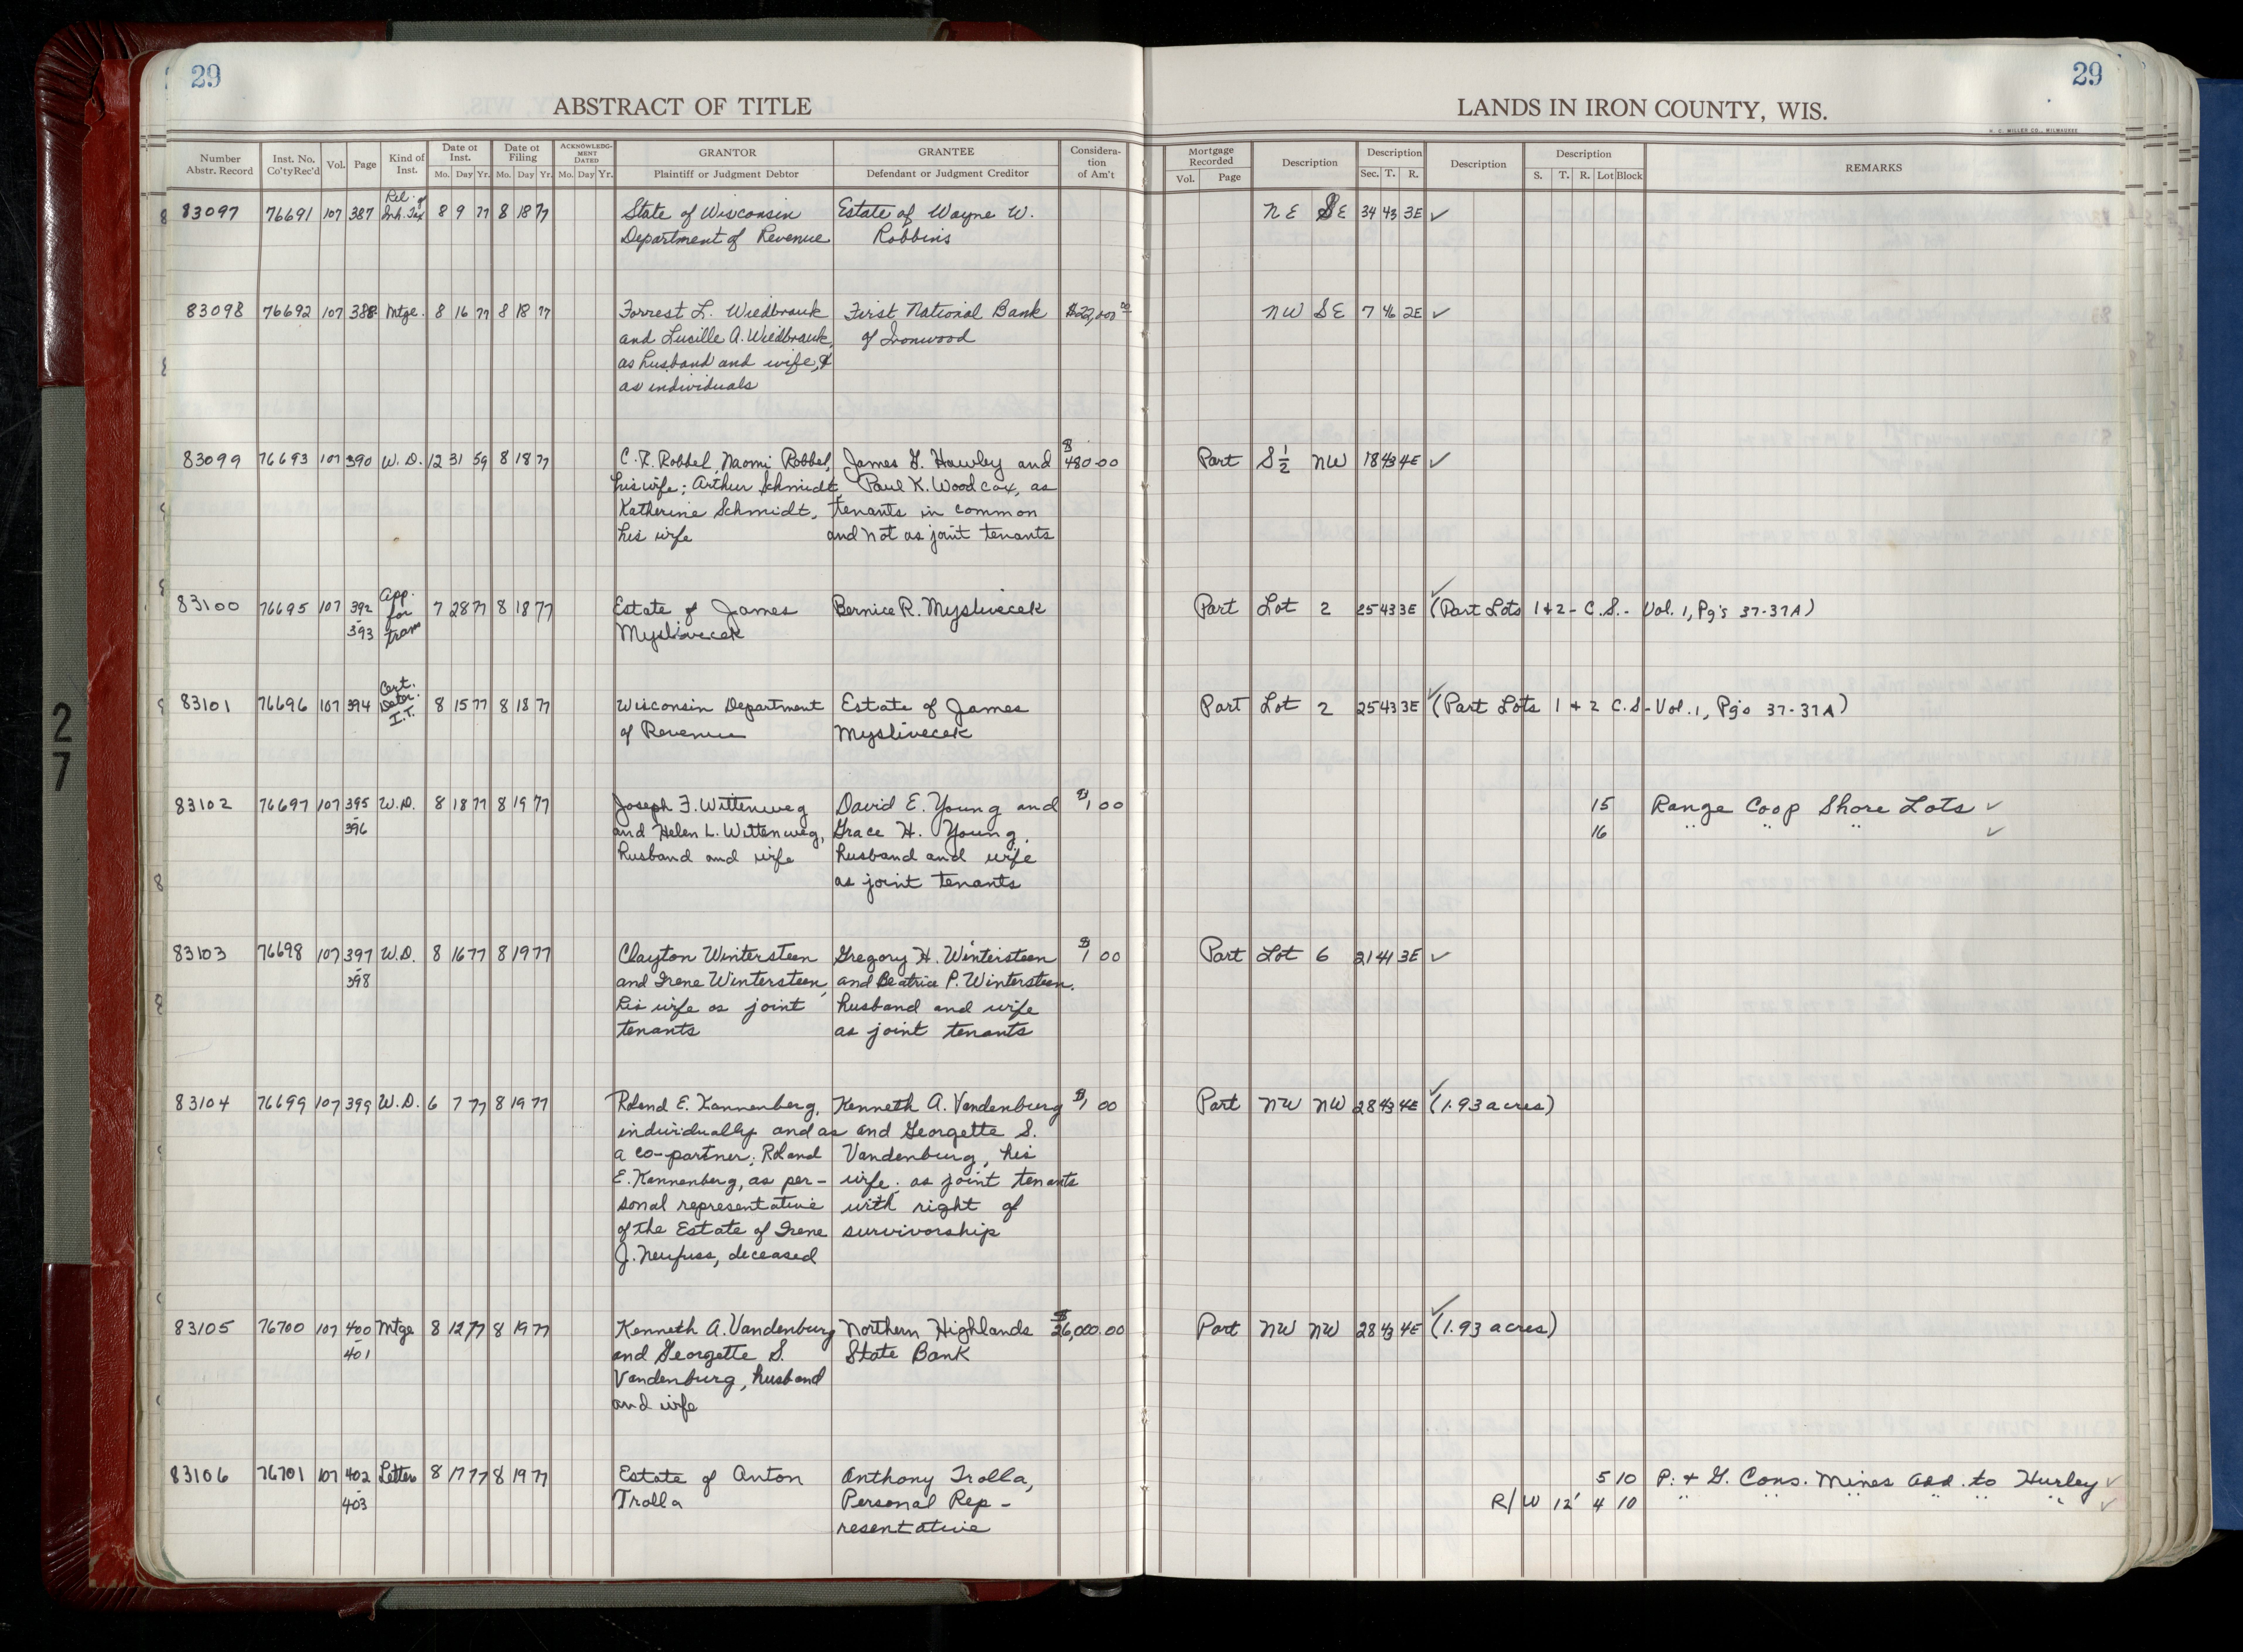 29
29
ABSTRACT OF TITLE
LANDS IN IRON COUNTY, WIS.
H. C. MILLER CO., MILWAUKEE
Number Abstr. Record | Inst. No. Co'ty Rec'd | Vol. | Page | Kind of Inst. | Date of Inst. Mo. Day Yr. | Date of Filing Mo. Day Yr. | ACKNOWLEDGMENT DATED Mo. Day Yr. | GRANTOR Plaintiff or Judgment Debtor | GRANTEE Defendant or Judgment Creditor | Consideration of Am't | Mortgage Recorded Vol. Page | Description | Description Sec. T. R. | Description | Description S. T. R. Lot Block | REMARKS
Rel. of
83097 76691 107 387 Inh. Tax 8 9 77 8 18 77 State of Wisconsin Estate of Wayne W. NE SE 34 43 3E ✓
Department of Revenue Robbins
83098 76692 107 388 Mtge. 8 16 77 8 18 77 Forrest L. Wiedbrauk First National Bank $22,000.00 NW SE 7 46 2E ✓
and Lucille A. Wiedbrauk, of Ironwood
as husband and wife, &
as individuals
83099 76693 107 390 W.D. 12 31 59 8 18 77 C.F. Robbel, Naomi Robbel, James G. Hawley and $480.00 Part S½ NW 18 43 4E ✓
his wife; Arthur Schmidt, Paul K. Woodcox, as
Katherine Schmidt, tenants in common
his wife and not as joint tenants
App.
83100 76695 107 392 for 7 28 77 8 18 77 Estate of James Bernice R. Myslivecek Part Lot 2 25 43 3E ✓ (Part Lots 1 & 2 - C.S. - Vol. 1, Pg's 37-37A)
-393 tran Myslivecek
Cert.
83101 76696 107 394 Deter. 8 15 77 8 18 77 Wisconsin Department Estate of James Part Lot 2 25 43 3E ✓ (Part Lots 1 & 2 C.S - Vol. 1, Pg's 37-37A)
I.T. of Revenue Myslivecek
83102 76697 107 395 W.D. 8 18 77 8 19 77 Joseph F. Wittenweg David E. Young and $1 00 15 Range Coop Shore Lots ✓
-396 and Helen L. Wittenweg, Grace H. Young, 16 " " " ✓
husband and wife husband and wife
as joint tenants
83103 76698 107 397 W.D. 8 16 77 8 19 77 Clayton Wintersteen Gregory H. Wintersteen $1 00 Part Lot 6 21 41 3E ✓
-398 and Irene Wintersteen, and Beatrice P. Wintersteen,
his wife as joint husband and wife
tenants as joint tenants
83104 76699 107 399 W.D. 6 7 77 8 19 77 Roland E. Kannenberg, Kenneth A. Vandenburg $1 00 Part NW NW 28 43 4E ✓ (1.93 acres)
individually and as and Georgette S.
a co-partner; Roland Vandenburg, his
E. Kannenberg, as per- wife, as joint tenants
sonal representative with right of
of the Estate of Irene survivorship
J. Neufuss, deceased
83105 76700 107 400 Mtge 8 12 77 8 19 77 Kenneth A. Vandenburg Northern Highlands $26,000.00 Part NW NW 28 43 4E ✓ (1.93 acres)
-401 and Georgette S. State Bank
Vandenburg, husband
and wife
83106 76701 107 402 Letters 8 17 77 8 19 77 Estate of Anton Anthony Trolla, 5 10 P. & G. Cons. Mines Add. to Hurley ✓
-403 Trolla Personal Rep- R/W 12' 4 10 " " " " " ✓
resentative
27